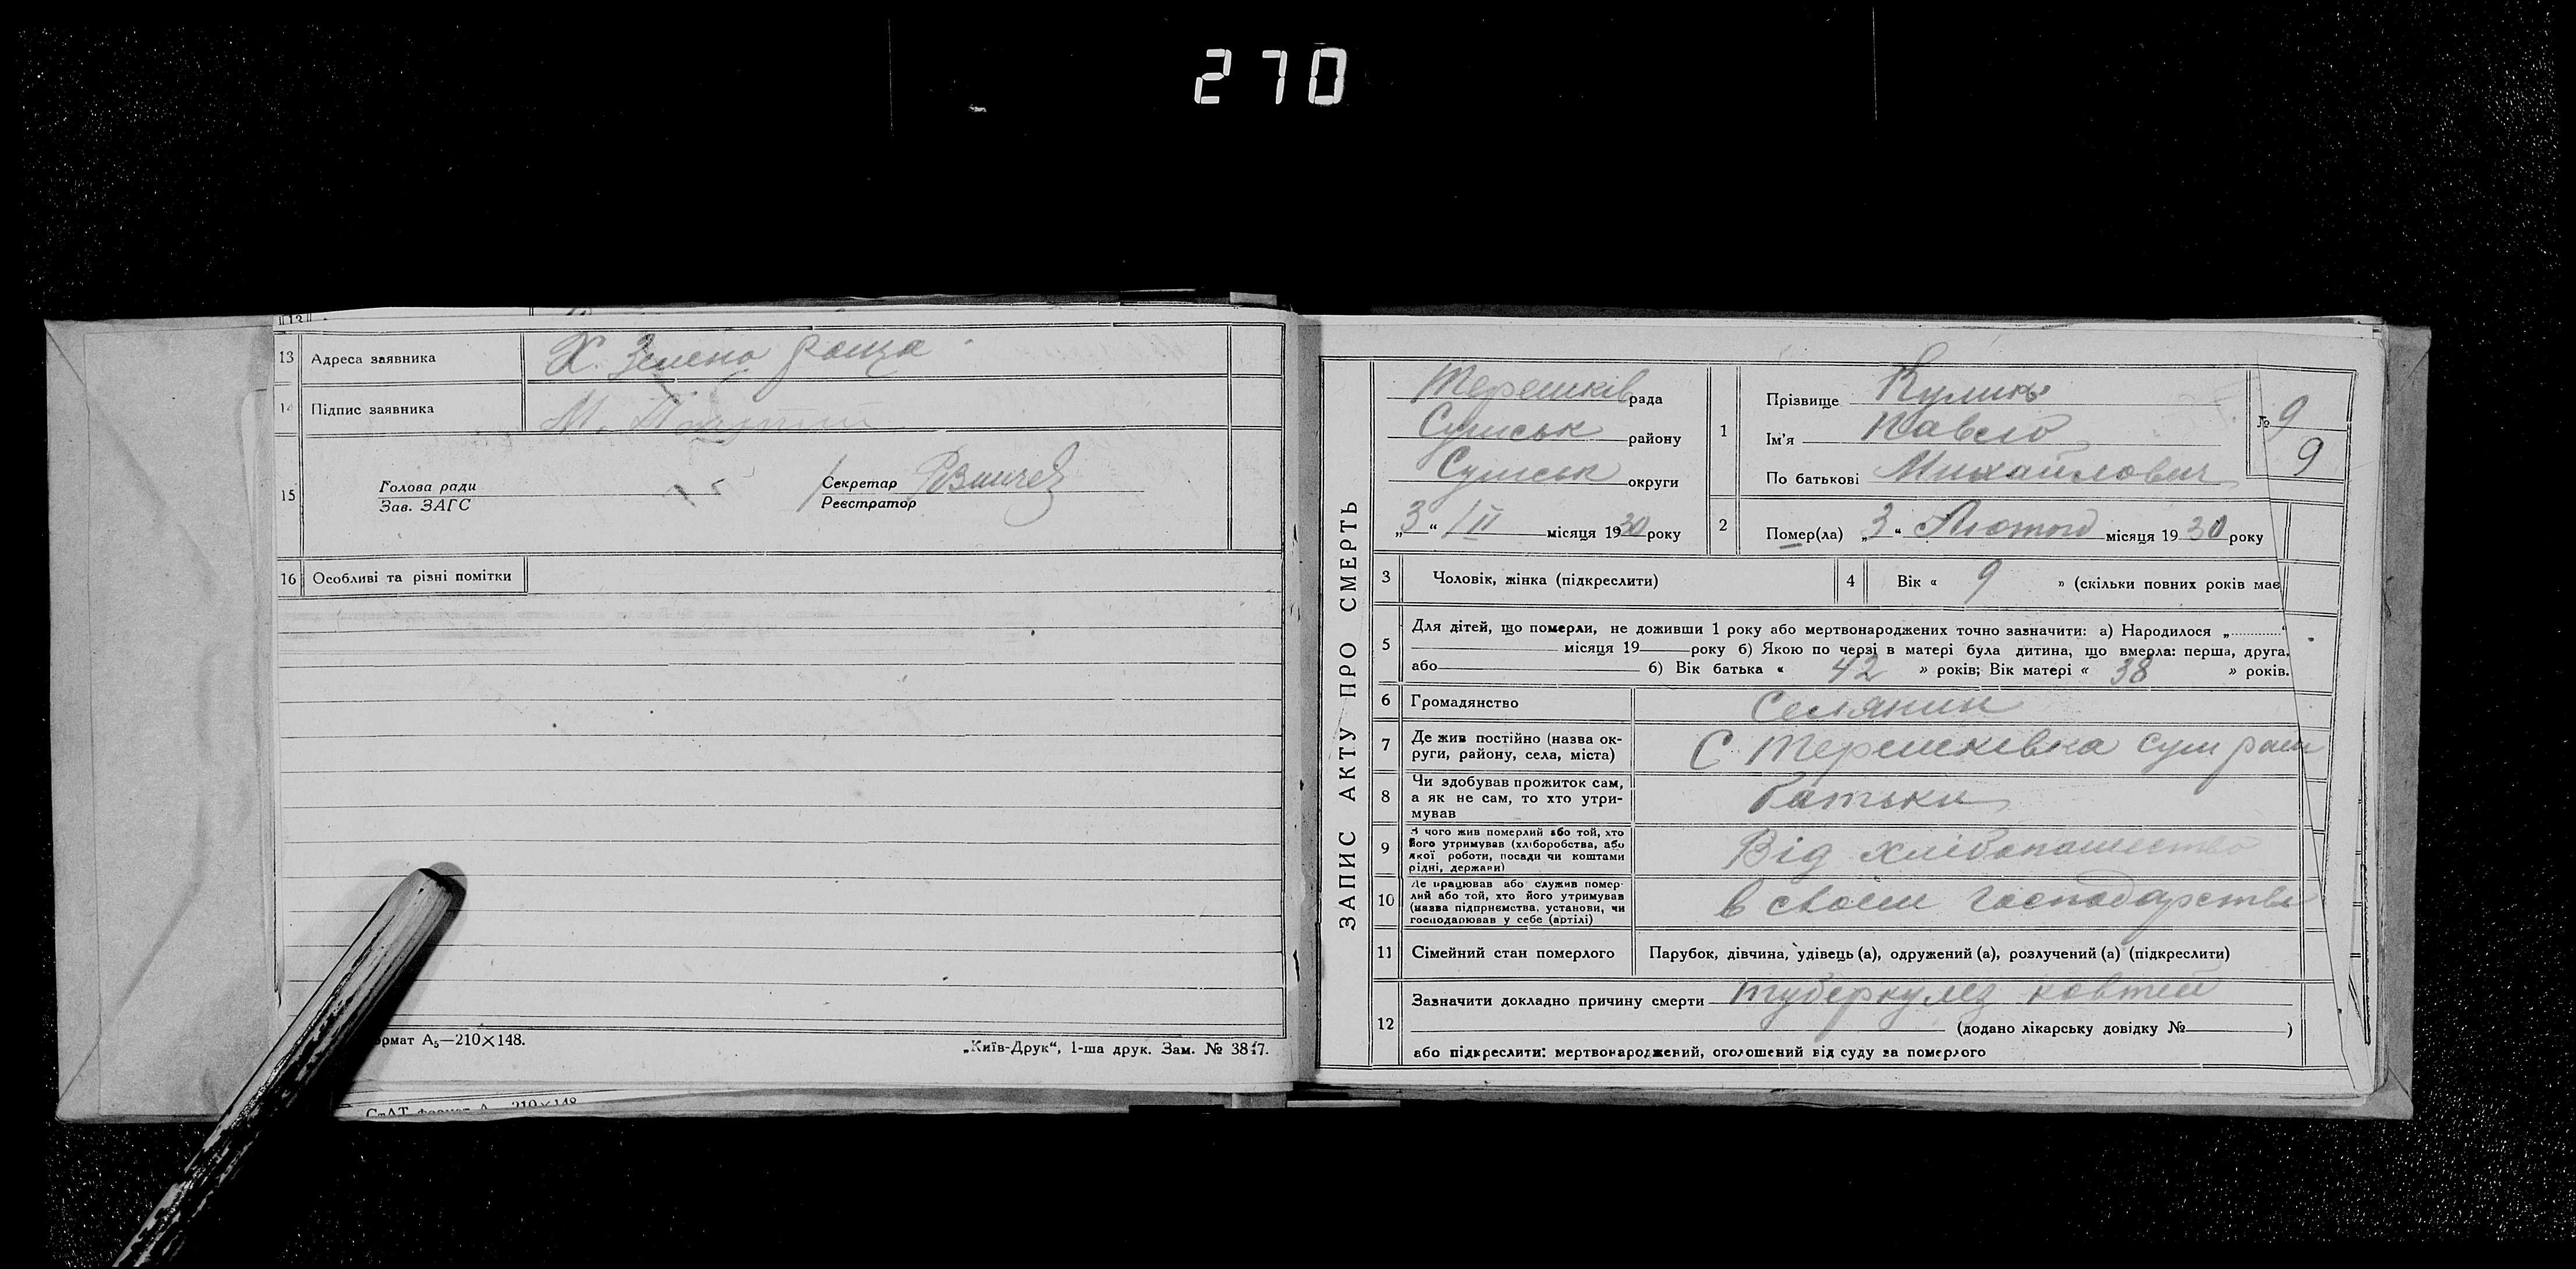 270
13 Адреса заявника Х. Зелена роща
14 Підпис заявника М.
15 Голова ради
Зав. ЗАГС
Секретар
Реєстратор
16 Особливі та різні помітки
Формат А5—210×148.
„Київ-Друк“, 1-ша друк. Зам. № 3847.
СтАТ формат А 210×148
ЗАПИС АКТУ ПРО СМЕРТЬ
Терешків рада
Сумськ району
Сумськ округи
„3“ /II місяця 1930 року
1 Прізвище Кулик
Ім'я Павло
По батькові Михайлович
№ 9
9
2 Помер(ла) „3“ Лютого місяця 1930 року
3 Чоловік, жінка (підкреслити)
4 Вік « 9 » (скільки повних років має
5 Для дітей, що померли, не доживши 1 року або мертвонароджених точно зазначити: а) Народилося „............“
місяця 19 року б) Якою по черзі в матері була дитина, що вмерла: перша, друга,
або б) Вік батька « 42 » років; Вік матері « 38 » років.
6 Громадянство Селянин
7 Де жив постійно (назва ок-
руги, району, села, міста) С. Терешківка Сум рай
8 Чи здобував прожиток сам,
а як не сам, то хто утри-
мував батьки
9 З чого жив померлий або той, хто
його утримував (хліборобства, або
якої роботи, посади чи коштами
рідні, держави) Від хлібопашество
10 Де працював або служив помер-
лий або той, хто його утримував
(назва підприємства, установи, чи
господарював у себе (артілі) в своїм господарстві
11 Сімейний стан померлого Парубок, дівчина, удівець (а), одружений (а), розлучений (а) (підкреслити)
12 Зазначити докладно причину смерти туберкулез ковтей
(додано лікарську довідку № )
або підкреслити: мертвонароджений, оголошений від суду за померлого